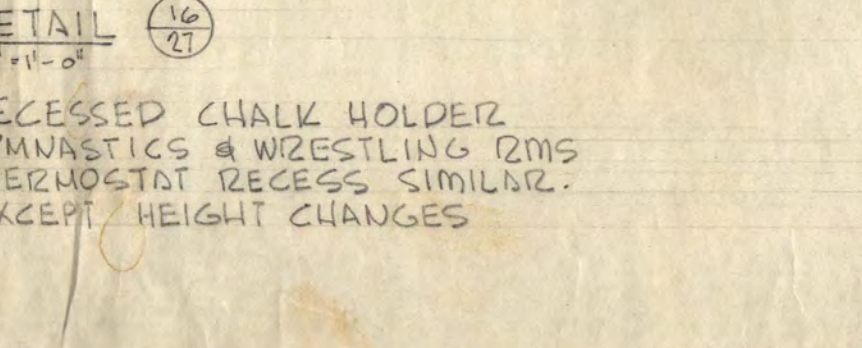 ETAIL 16/27
"=1'-0"
ECESSED CHALK HOLDER
YMNASTICS & WRESTLING RMS
ERMOSTAT RECESS SIMILAR.
XCEPT HEIGHT CHANGES